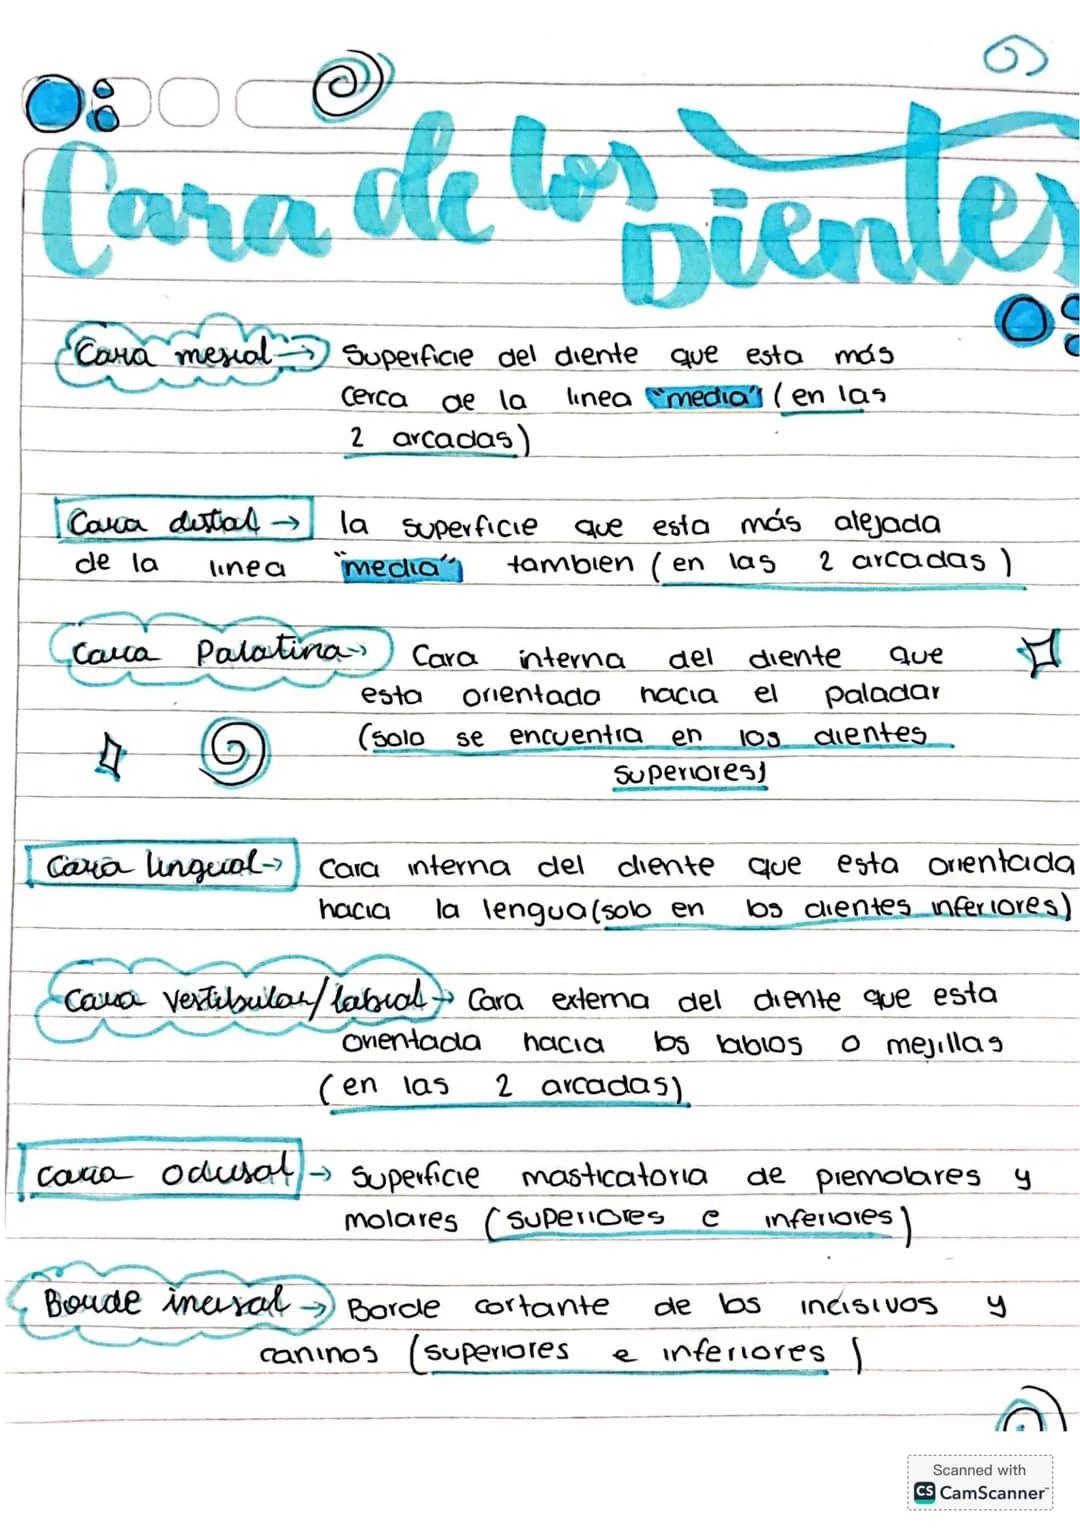 Cara de los
Dientes
Cara mesial → Superficie del diente que esta más
cerca de la linea "media" (en las
2 arcadas)
Cara distal → la superficie que esta más alejada
de la linea "media" tambien (en las 2 arcadas)
Cara Palatina → Cara interna del diente que
esta orientado hacia el paladar
(solo se encuentra en los dientes
superiores)
Cara lingual → Cara interna del diente que esta orientada
hacia la lengua (solo en los dientes inferiores)
Cara vestibular/labial → Cara externa del diente que esta
orientada hacia los labios o mejillas
(en las 2 arcadas)
cara oclusal → Superficie masticatoria de premolares y
molares (superiores e inferiores)
Borde incisal → Borde cortante de los incisivos y
caninos (superiores e inferiores)
Scanned with
CS CamScanner